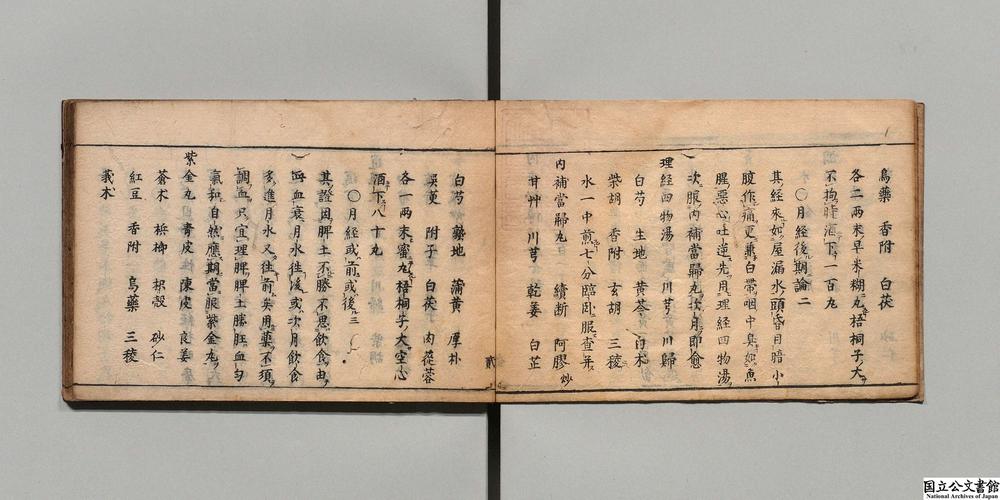 烏藥 香附 白茯
各二兩末早米糊丸梧桐子大
不拘時酒下一百丸
〇月経後期論二
其経來如屋漏水頭昏目暗小
腹作痛更兼白帶咽中臭如魚
腥惡心吐逆先用理経四物湯
次服内補當歸丸次月即愈
理経四物湯 川芎 川歸
白芍 生地 黄芩 白朮
柴胡 香附 玄胡 三稜
水一中煎七分臨卧服查再
内補當歸丸 續断 阿膠炒
甘艸 川芎 乾姜 白芷
白芍 藜地 蒲黄 厚朴
吳萸 附子 白茯 肉蓯蓉
各一兩末蜜丸梧桐子大空心
酒下八十丸
〇月経或前或後三
其證因脾土不勝不思飲食由
血衰月水往後或次月飲食
多進月水又往前矣用藥不須
調血只宜理脾脾土勝旺血勻
氣和自然應期當服紫金丸
紫金丸 青皮 陳皮 良姜
蒼朮 梹榔 枳殻 砂仁
紅豆 香附 烏藥 三稜
莪朮
貳
国立公文書館
National Archives of Japan